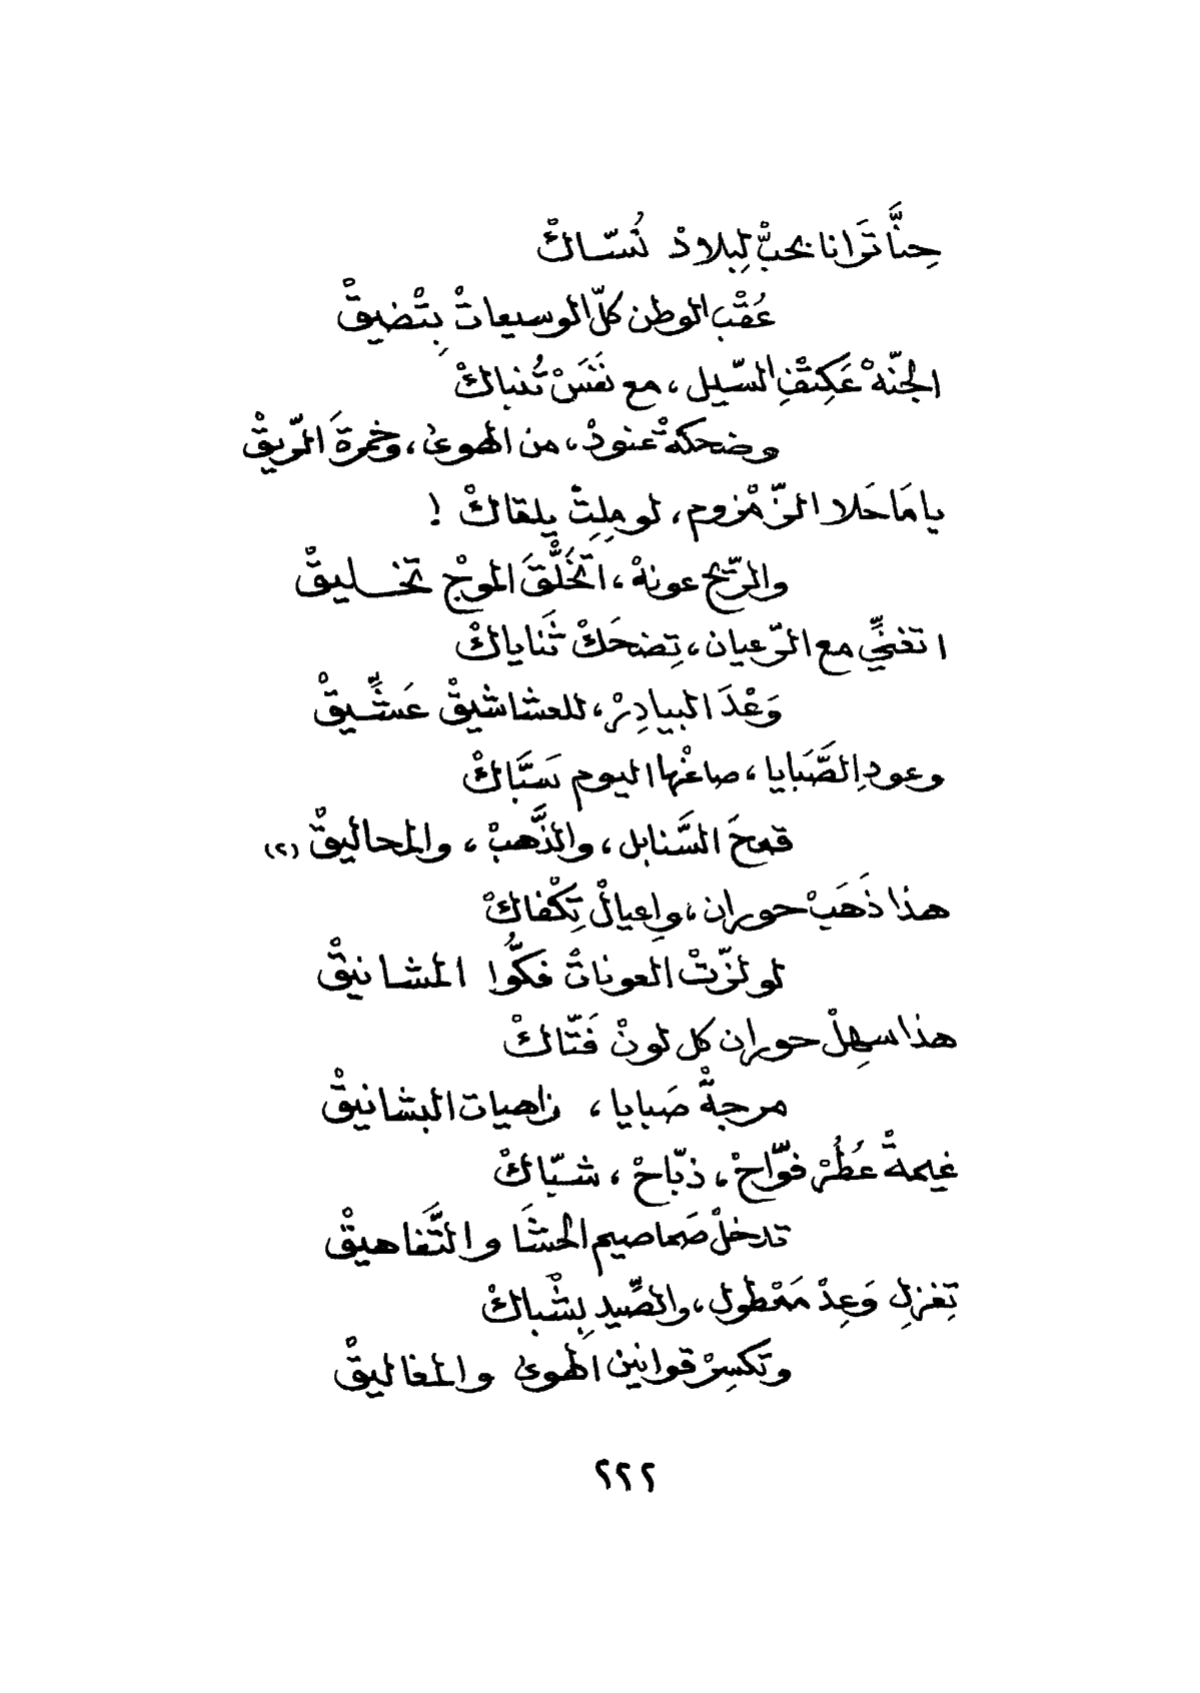 حِنَّا تَرانا بحبّْ لِبلادْ نُسّاكْ
عُقْبِ الوطن كلّ الوسيعاتْ بِتْضيقْ
الجنّهْ عَكِتْفِ السّيل، مع نَفَسْ تُنباكْ
وضحكةْ عنودْ، من الهوىٰ، وخمرةَ الرّيقْ
يا مَا حَلا الزّمْزوم، لو مِلِتْ يلقاكْ !
والرّيح عونهْ، اتْخَلْقَ الموجْ تخليقْ
اتغنِّي مع الرّعيان، تِضحَكْ ثَناياكْ
وَعْدَ البيادِرْ، للعشاشيقْ عَشِّيقْ
وعودِ الصَّبايا، صاغْها اليوم سَبَّاكْ
قمحَ السَّنابل، والذَّهبْ، والمحاليقْ (٢)
هذا ذَهَبْ حوران، واعيالْ تِكْفاكْ
لو لزّتْ العوناتْ فكُّوا المشانيقْ
هذا سهِلْ حوران كل لونْ فَتّاكْ
مرجةْ صَبايا، زاهيات البشانيقْ
غيمةْ عُطُرْ فوّاحْ، ذبّاحْ، شبّاكْ
تدخلْ صَماصيم الحشَا والتَّفاهيقْ
تِغزلِ وَعِدْ مَمْطول، والصِّيد بِشْباكْ
وتكسِرْ قوانين الهوىٰ والمغاليقْ
٢٢٢